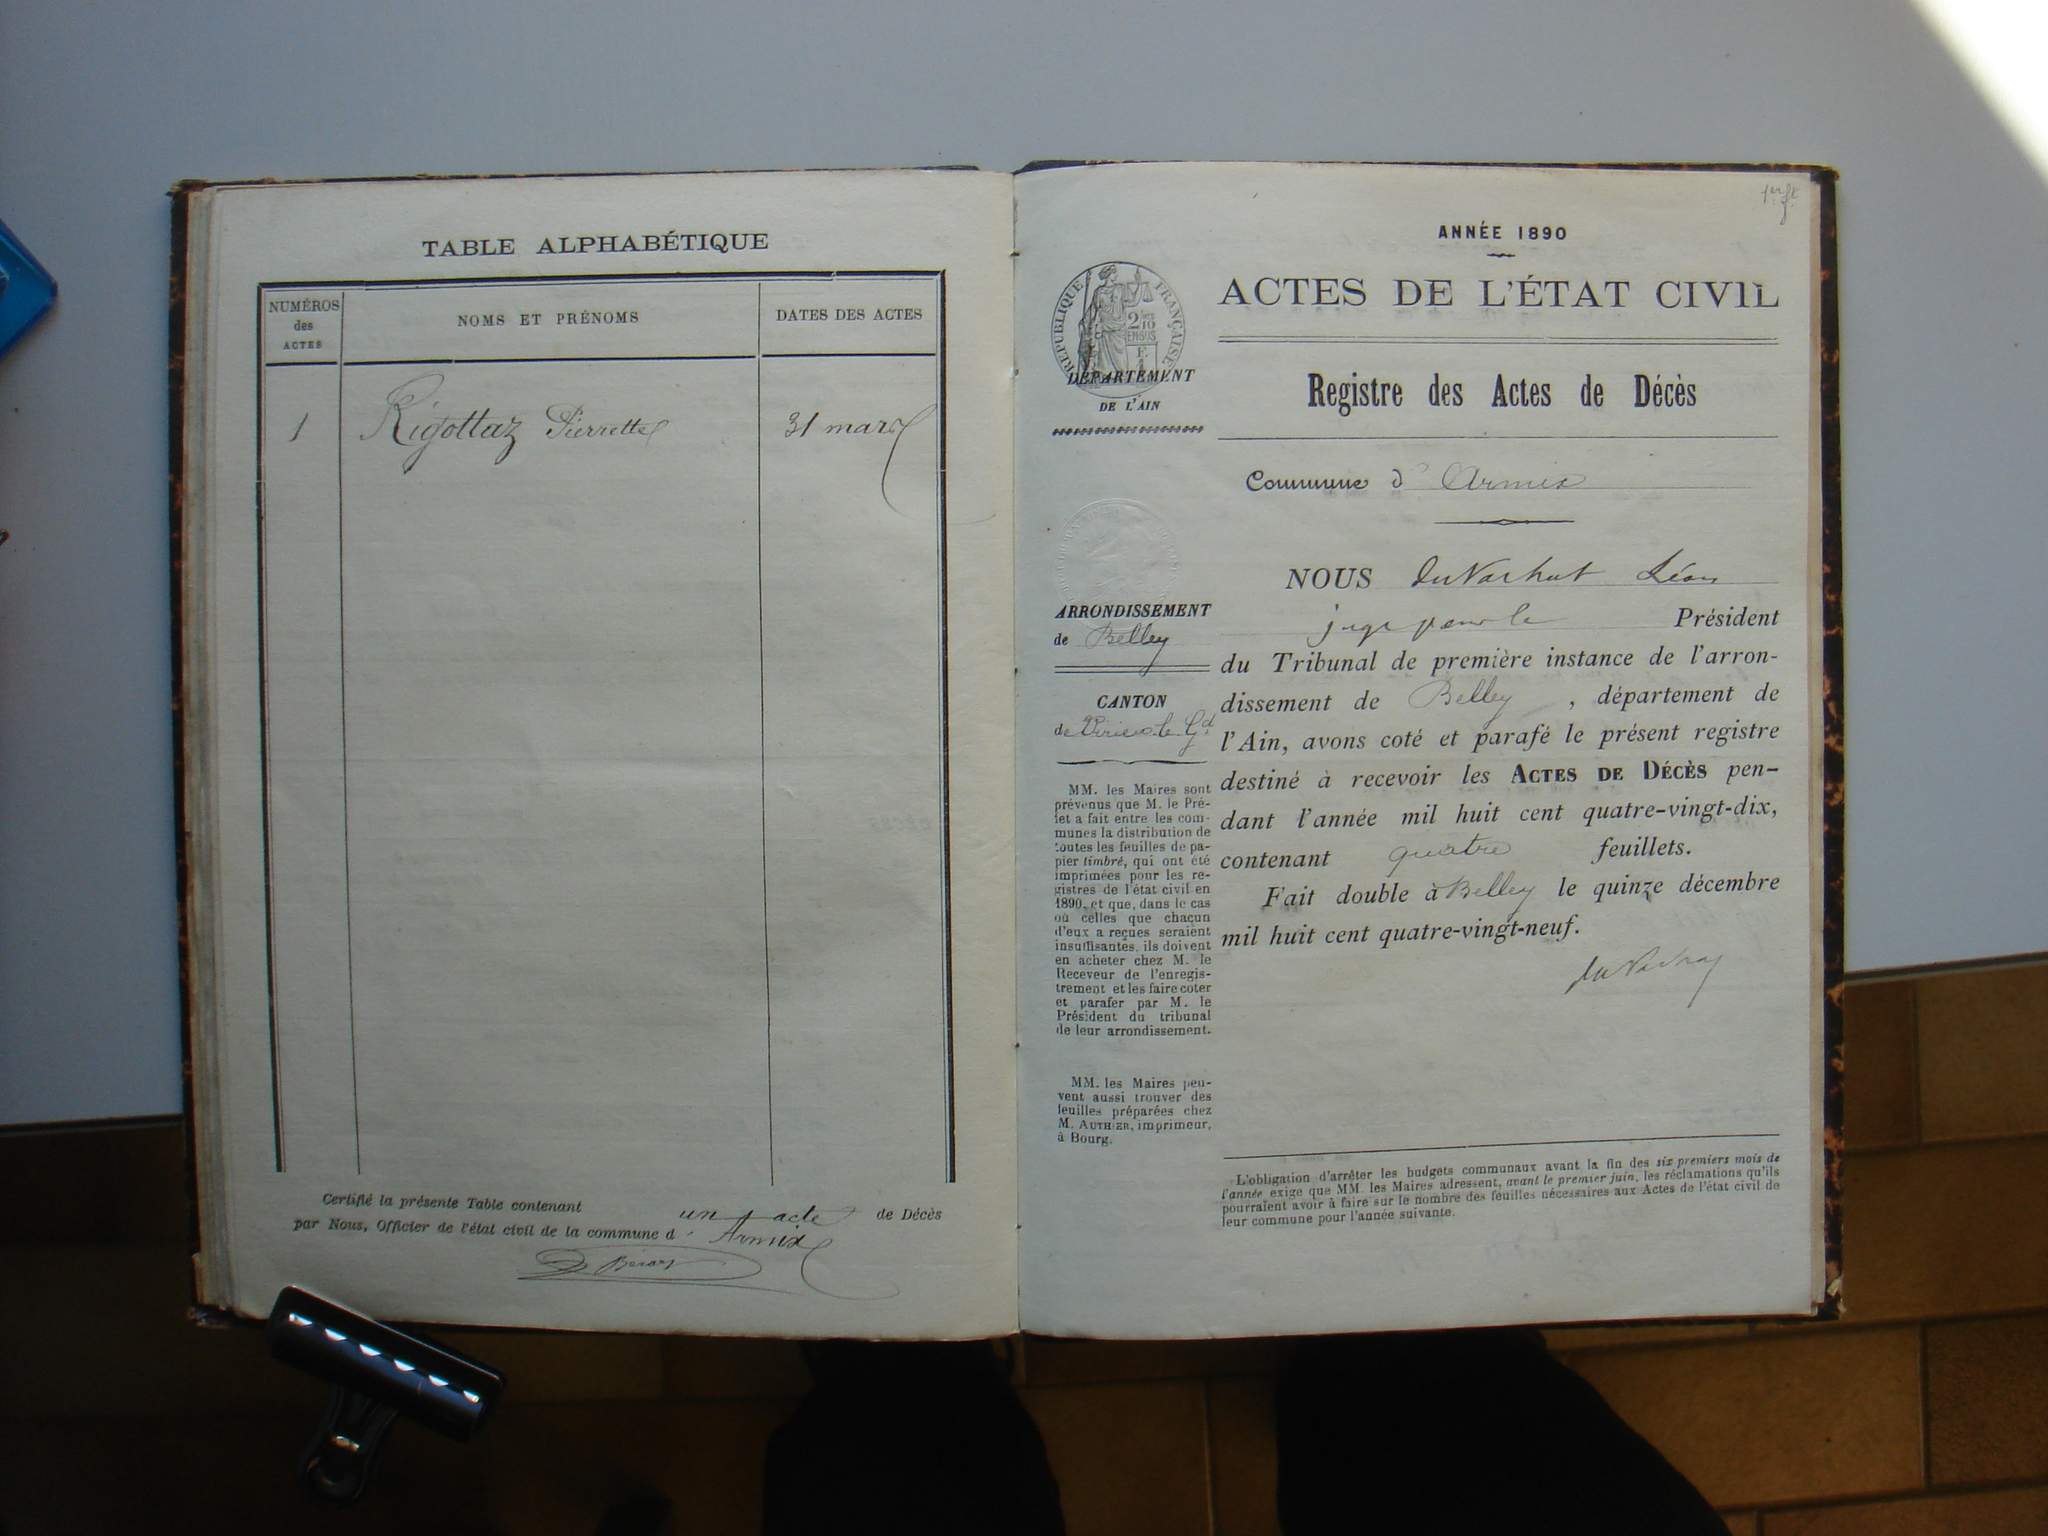 TABLE ALPHABÉTIQUE
NUMÉROS
des
ACTES
NOMS ET PRÉNOMS
DATES DES ACTES
1 Rigottaz Pierrette 31 mars
Certifié la présente Table contenant un acte de Décès
par Nous, Officier de l'état civil de la commune d' Armix
1er ft.
ANNÉE 1890
ACTES DE L'ÉTAT CIVIL
RÉPUBLIQUE FRANÇAISE
2/10
EN SUS
DÉPARTEMENT
DE L'AIN
Registre des Actes de Décès
Commune d' Armix
ARRONDISSEMENT
de Belley
CANTON
de Virieu-le-Gd
MM. les Maires sont
prévenus que M. le Pré-
fet a fait entre les com-
munes la distribution de
toutes les feuilles de pa-
pier timbré, qui ont été
imprimées pour les re-
gistres de l'état civil en
1890, et que, dans le cas
où celles que chacun
d'eux a reçues seraient
insuffisantes, ils doivent
en acheter chez M. le
Receveur de l'enregis-
trement et les faire coter
et parafer par M. le
Président du tribunal
de leur arrondissement.
MM. les Maires peu-
vent aussi trouver des
feuilles préparées chez
M. AUTHIER, imprimeur,
à Bourg.
NOUS Léon
juge pour le Président
du Tribunal de première instance de l'arron-
dissement de Belley, département de
l'Ain, avons coté et parafé le présent registre
destiné à recevoir les ACTES DE DÉCÈS pen-
dant l'année mil huit cent quatre-vingt-dix,
contenant quatre feuillets.
Fait double à Belley le quinze décembre
mil huit cent quatre-vingt-neuf.
L'obligation d'arrêter les budgets communaux avant la fin des six premiers mois de
l'année exige que MM. les Maires adressent, avant le premier juin, les réclamations qu'ils
pourraient avoir à faire sur le nombre des feuilles nécessaires aux Actes de l'état civil de
leur commune pour l'année suivante.